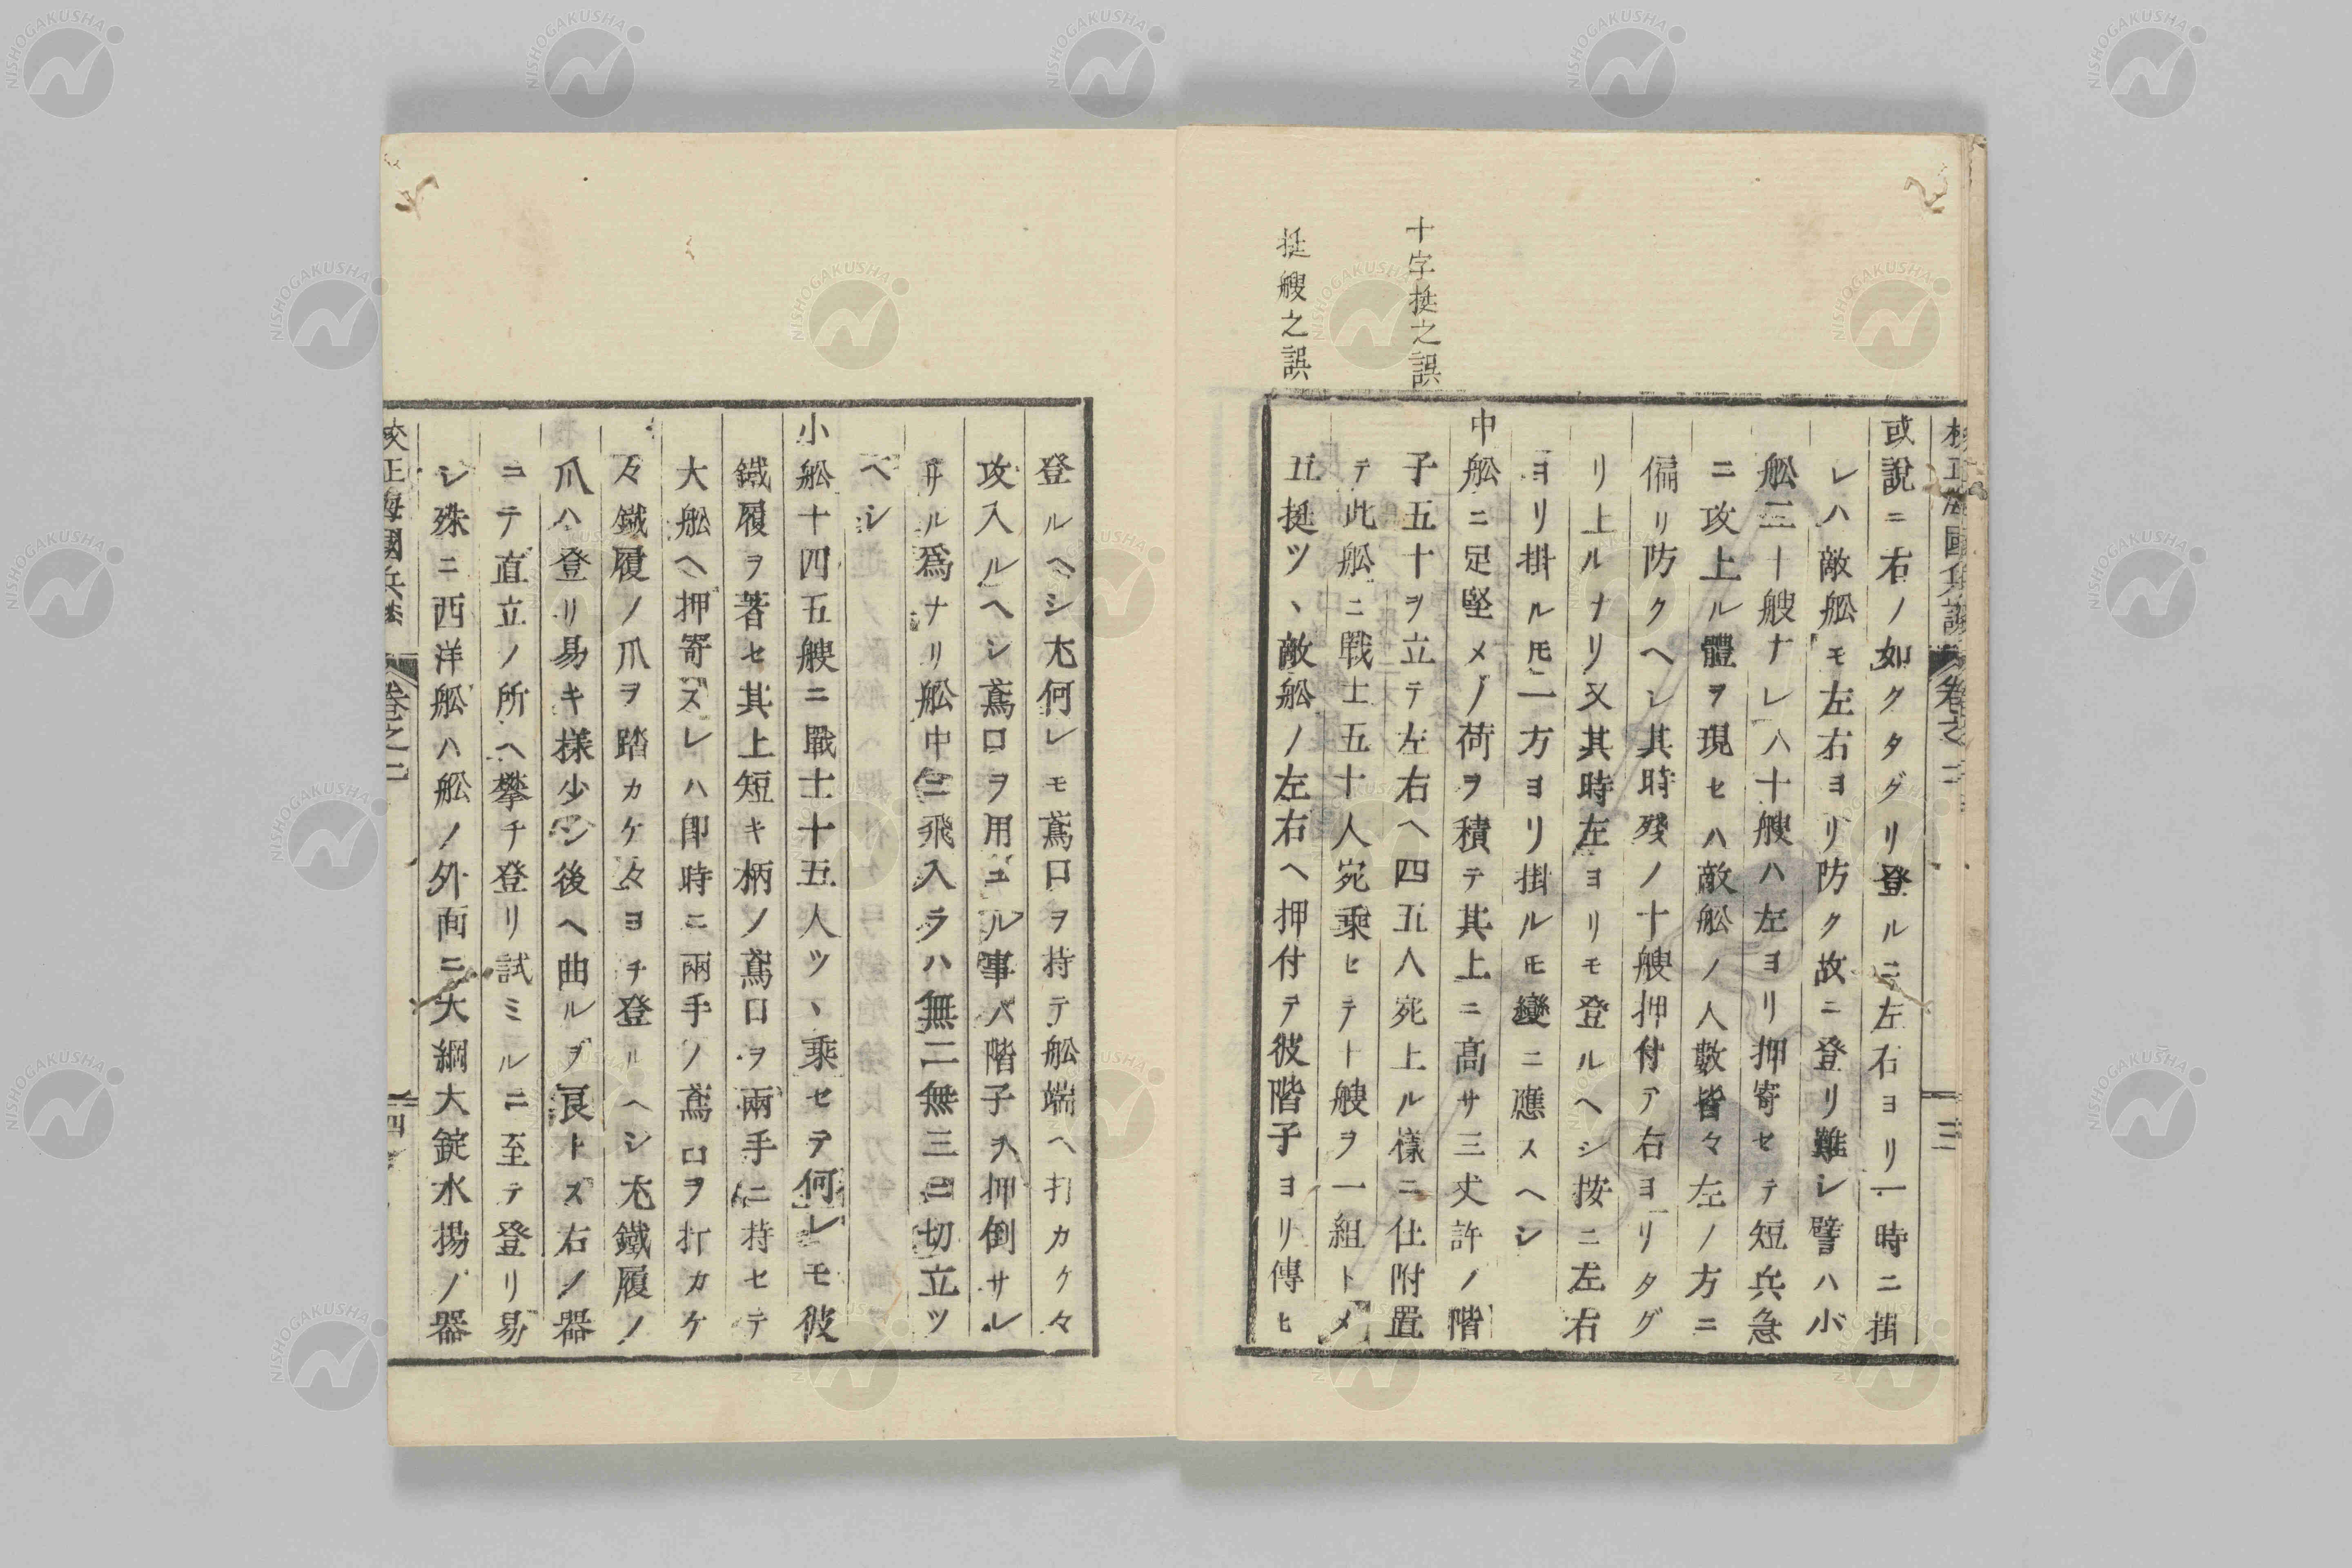 十字挺之誤
挺艘之誤
校正海國兵談 卷之二 三
或說ニ右ノ如クタグリ登ルニ左右ヨリ一時ニ掛
レハ敵舩モ左右ヨリ防ク故ニ登リ難シ譬ハ小
舩三十艘ナレハ十艘ハ左ヨリ押寄セテ短兵急
ニ攻上ル體ヲ現セハ敵舩ノ人數皆々左ノ方ニ
偏リ防クヘシ其時殘ノ十艘押付テ右ヨリタグ
リ上ルナリ又其時左ヨリモ登ルヘシ按ニ左右
ヨリ掛ルモ二方ヨリ掛ルモ變ニ應スヘシ
中舩ニ足堅メノ荷ヲ積テ其上ニ高サ三丈許ノ階
子五十ヲ立テ左右ヘ四五人宛上ル樣ニ仕附置
テ此舩ニ戰士五十人宛乘ヒテ十艘ヲ一組トメ
五挺ツヽ敵舩ノ左右ヘ押付テ彼階子ヨリ傳ヒ
登ルヘシ尤何レモ鳶口ヲ持テ舩端ヘ打カケ々
攻入ルヘシ鳶口ヲ用ユル事ハ階子ヲ押倒サレ
サル爲ナリ舩中ニ飛入ラハ無二無三ニ切立ツ
ヘシ
小舩十四五艘ニ戰士十五人ツヽ乘セテ何レモ彼
鐵履ヲ著セ其上短キ柄ノ鳶口ヲ兩手ニ持セテ
大舩ヘ押寄スレハ卽時ニ兩手ノ鳶口ヲ打カケ
々鐵履ノ爪ヲ踏カケ々ヨチ登ルヘシ尤鐵履ノ
爪ハ登リ易キ樣少シ後ヘ曲ルヲ良トス右ノ器
ニテ直立ノ所ヘ攀チ登リ試ミルニ至テ登リ易
シ殊ニ西洋舩ハ舩ノ外面ニ大綱大錠水揚ノ器
校正海國兵談 卷之二 四
NISHOGAKUSHA